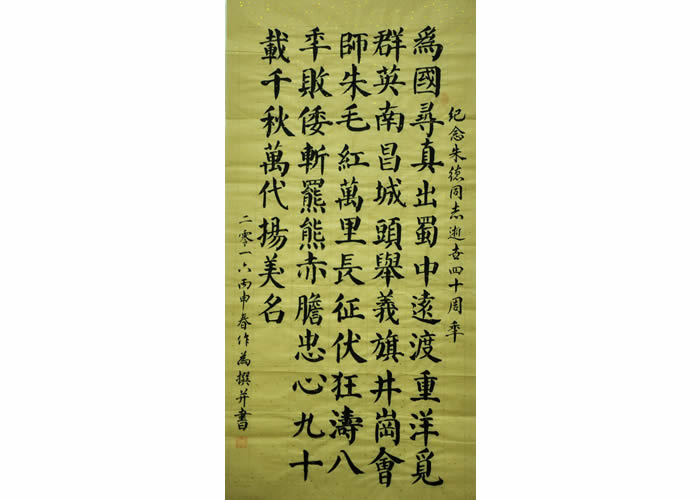 紀念朱德同志逝世四十周年
為國尋真出蜀中遠渡重洋覓
群英南昌城頭舉義旗井崗會
師朱毛紅萬里長征伏狂濤八
年敗倭斬羆熊赤膽忠心九十
載千秋萬代揚美名
二零一六丙申春作為撰并書